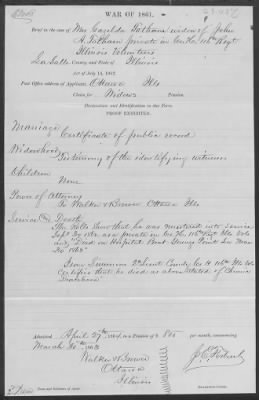 WAR OF 1861.
Brief in the case of Mrs Casilda Totham widow of John
H. Totham private in Co. H. 116th Regt
Illinois Volunteers
La Salle County, and State of Illinois
Act of July 14, 1862.
Post Office address of Applicant, Ottawa Ills
Claim for Widows Pension.
Declaration and Identification in Due Form.
PROOF EXHIBITED.
Marriage
Certificate of public record
Widowhood
Testimony of the identifying witness
Children
None
Power of Attorney
To Walker & Brown Ottawa Ills
Service & Death
The Rolls show that he was mustered into service
Sept 1862 as a private in Co. H, 116th Regt Ills Vols
and, "Died on Hospital Boat Youngs Point La.
1863"
2d Lieut Comdg Co. H 116th Ills Vols
Certifies that he died as above stated of Chronic
Diarrhoea
Admitted April 27th 1864, to a Pension of $ 8.00 per month, commencing
March 1863
Walker & Brown
Ottawa
Illinois
Examining Clerk.
Name and Residence of Agent.